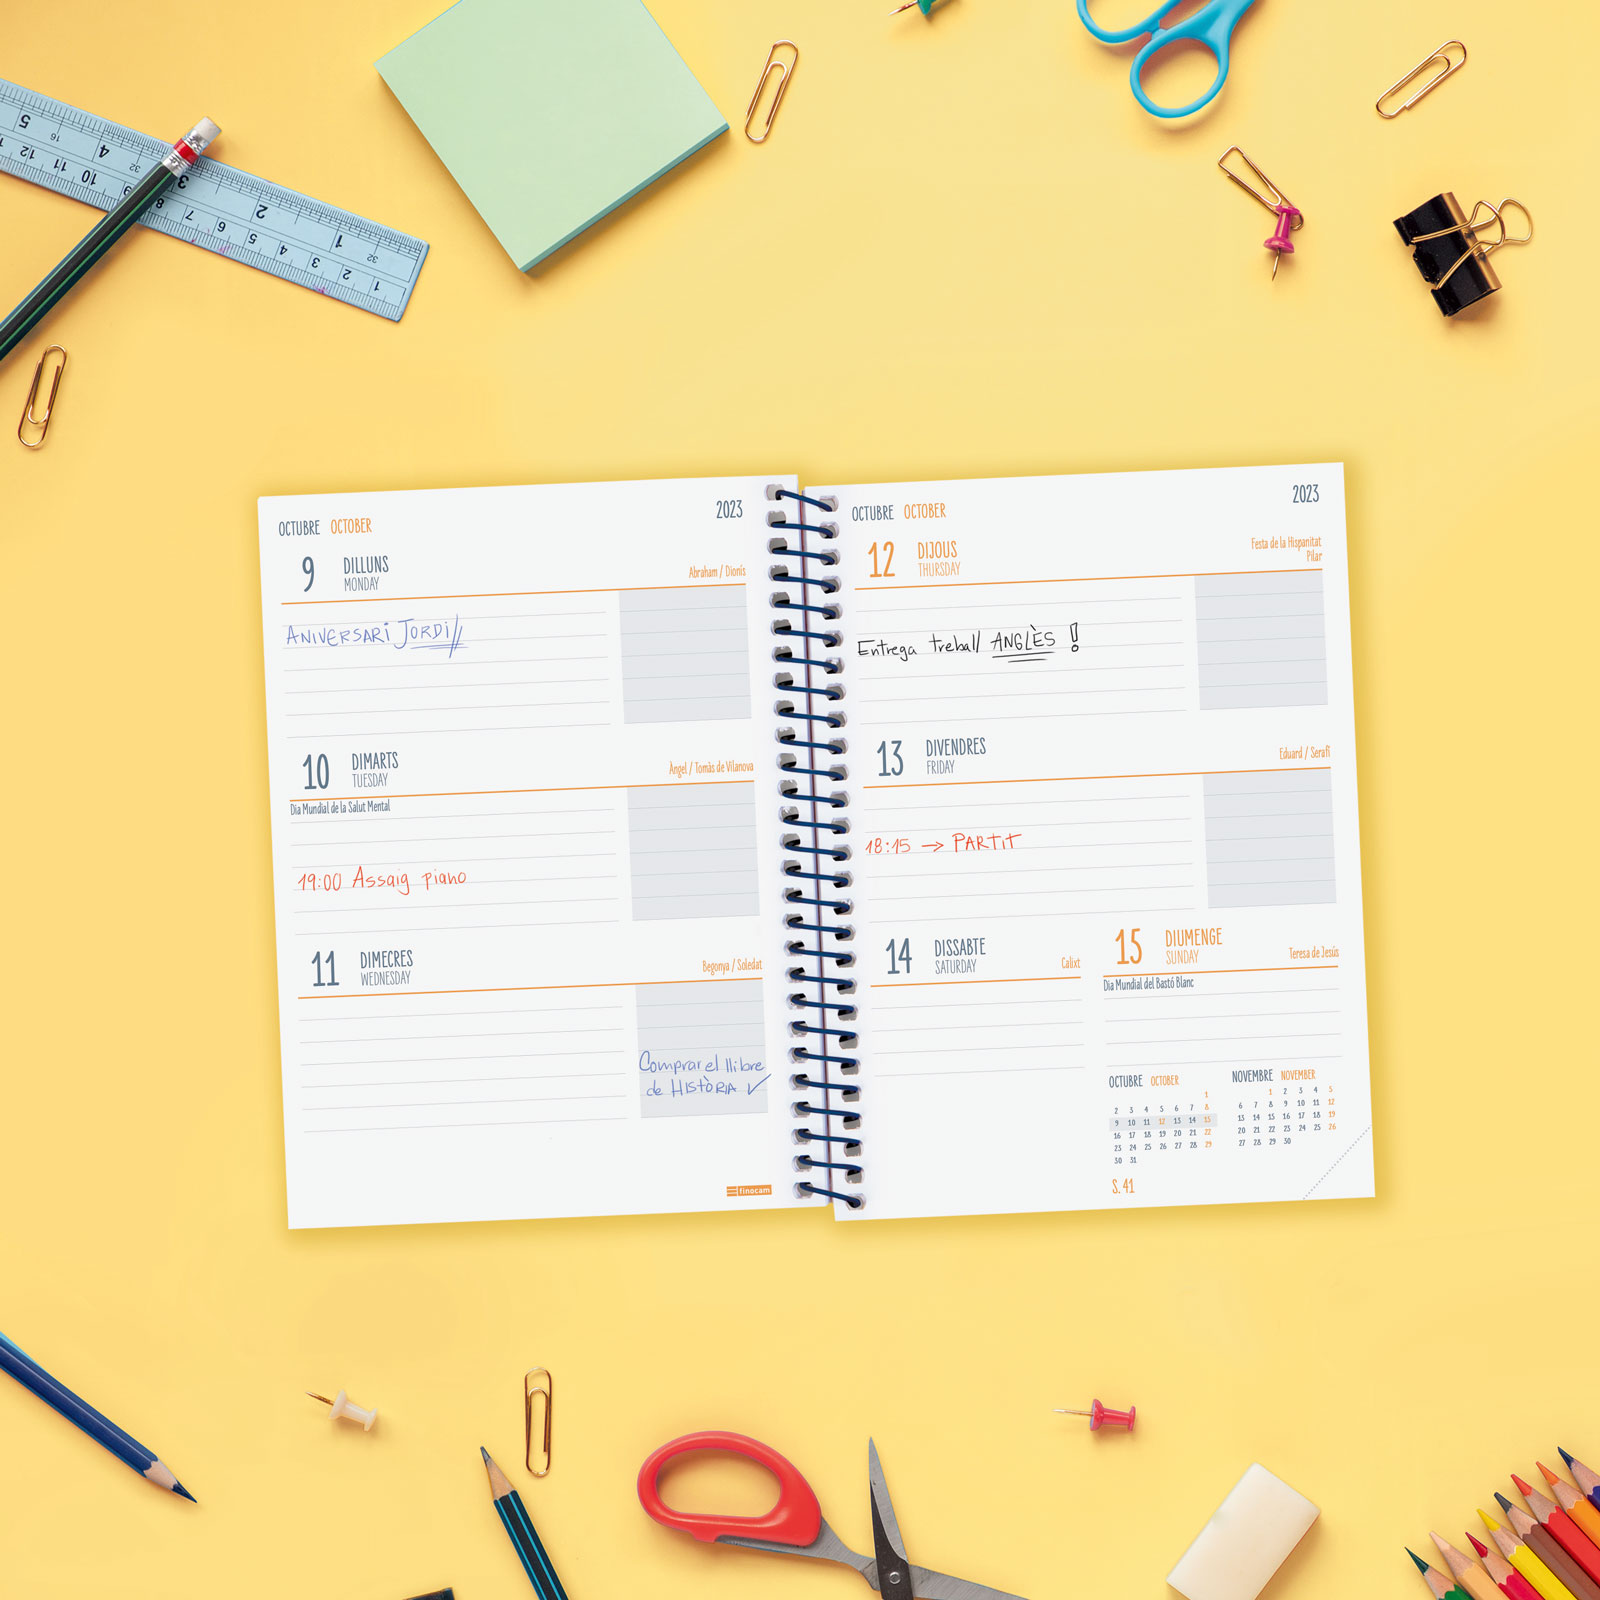 5 4 3 2 1
16 32 32
12 11 10 9 8 7 6 5 4 3 2 1
OCTUBRE OCTOBER 2023
9 DILLUNS
MONDAY
Abraham / Dionís
ANIVERSARI JORDI//
10 DIMARTS
TUESDAY
Àngel / Tomàs de Vilanova
Dia Mundial de la Salut Mental
19:00 Assaig piano
11 DIMECRES
WEDNESDAY
Begonya / Soledat
Comprar el llibre
de HISTÒRIA ✓
finocam
OCTUBRE OCTOBER 2023
12 DIJOUS
THURSDAY
Festa de la Hispanitat
Pilar
Entrega treball ANGLÈS !
13 DIVENDRES
FRIDAY
Eduard / Serafí
18:15 → PARTIT
14 DISSABTE
SATURDAY
Calixt
15 DIUMENGE
SUNDAY
Teresa de Jesús
Dia Mundial del Bastó Blanc
OCTUBRE OCTOBER
1
2 3 4 5 6 7 8
9 10 11 12 13 14 15
16 17 18 19 20 21 22
23 24 25 26 27 28 29
30 31
NOVEMBRE NOVEMBER
1 2 3 4 5
6 7 8 9 10 11 12
13 14 15 16 17 18 19
20 21 22 23 24 25 26
27 28 29 30
S. 41